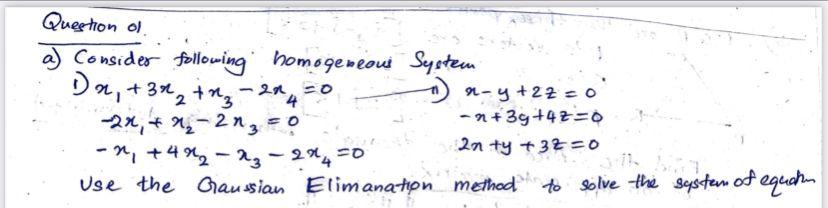 Question 01.
a) Consider following homogeneous System
1) x₁ + 3x₂ + x₃ - 2x₄ = 0 11) x - y + 2z = 0
-2x₁ + x₂ - 2x₃ = 0 - x + 3y + 4z = 0
- x₁ + 4x₂ - x₃ - 2x₄ = 0 2x + y + 3z = 0
Use the Gaussian Elimanation method to solve the system of equatn